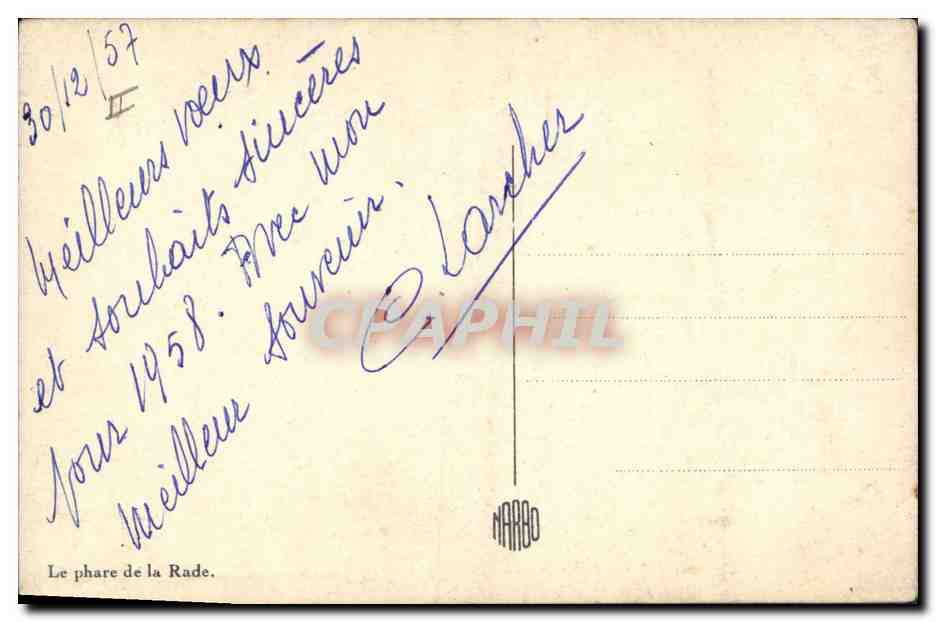 30/12/57
II
Meilleurs voeux
et souhaits sincères
pour 1958. Avec mon
meilleur souvenir.
G. Larcher
CPAPHIL
NARBO
Le phare de la Rade.